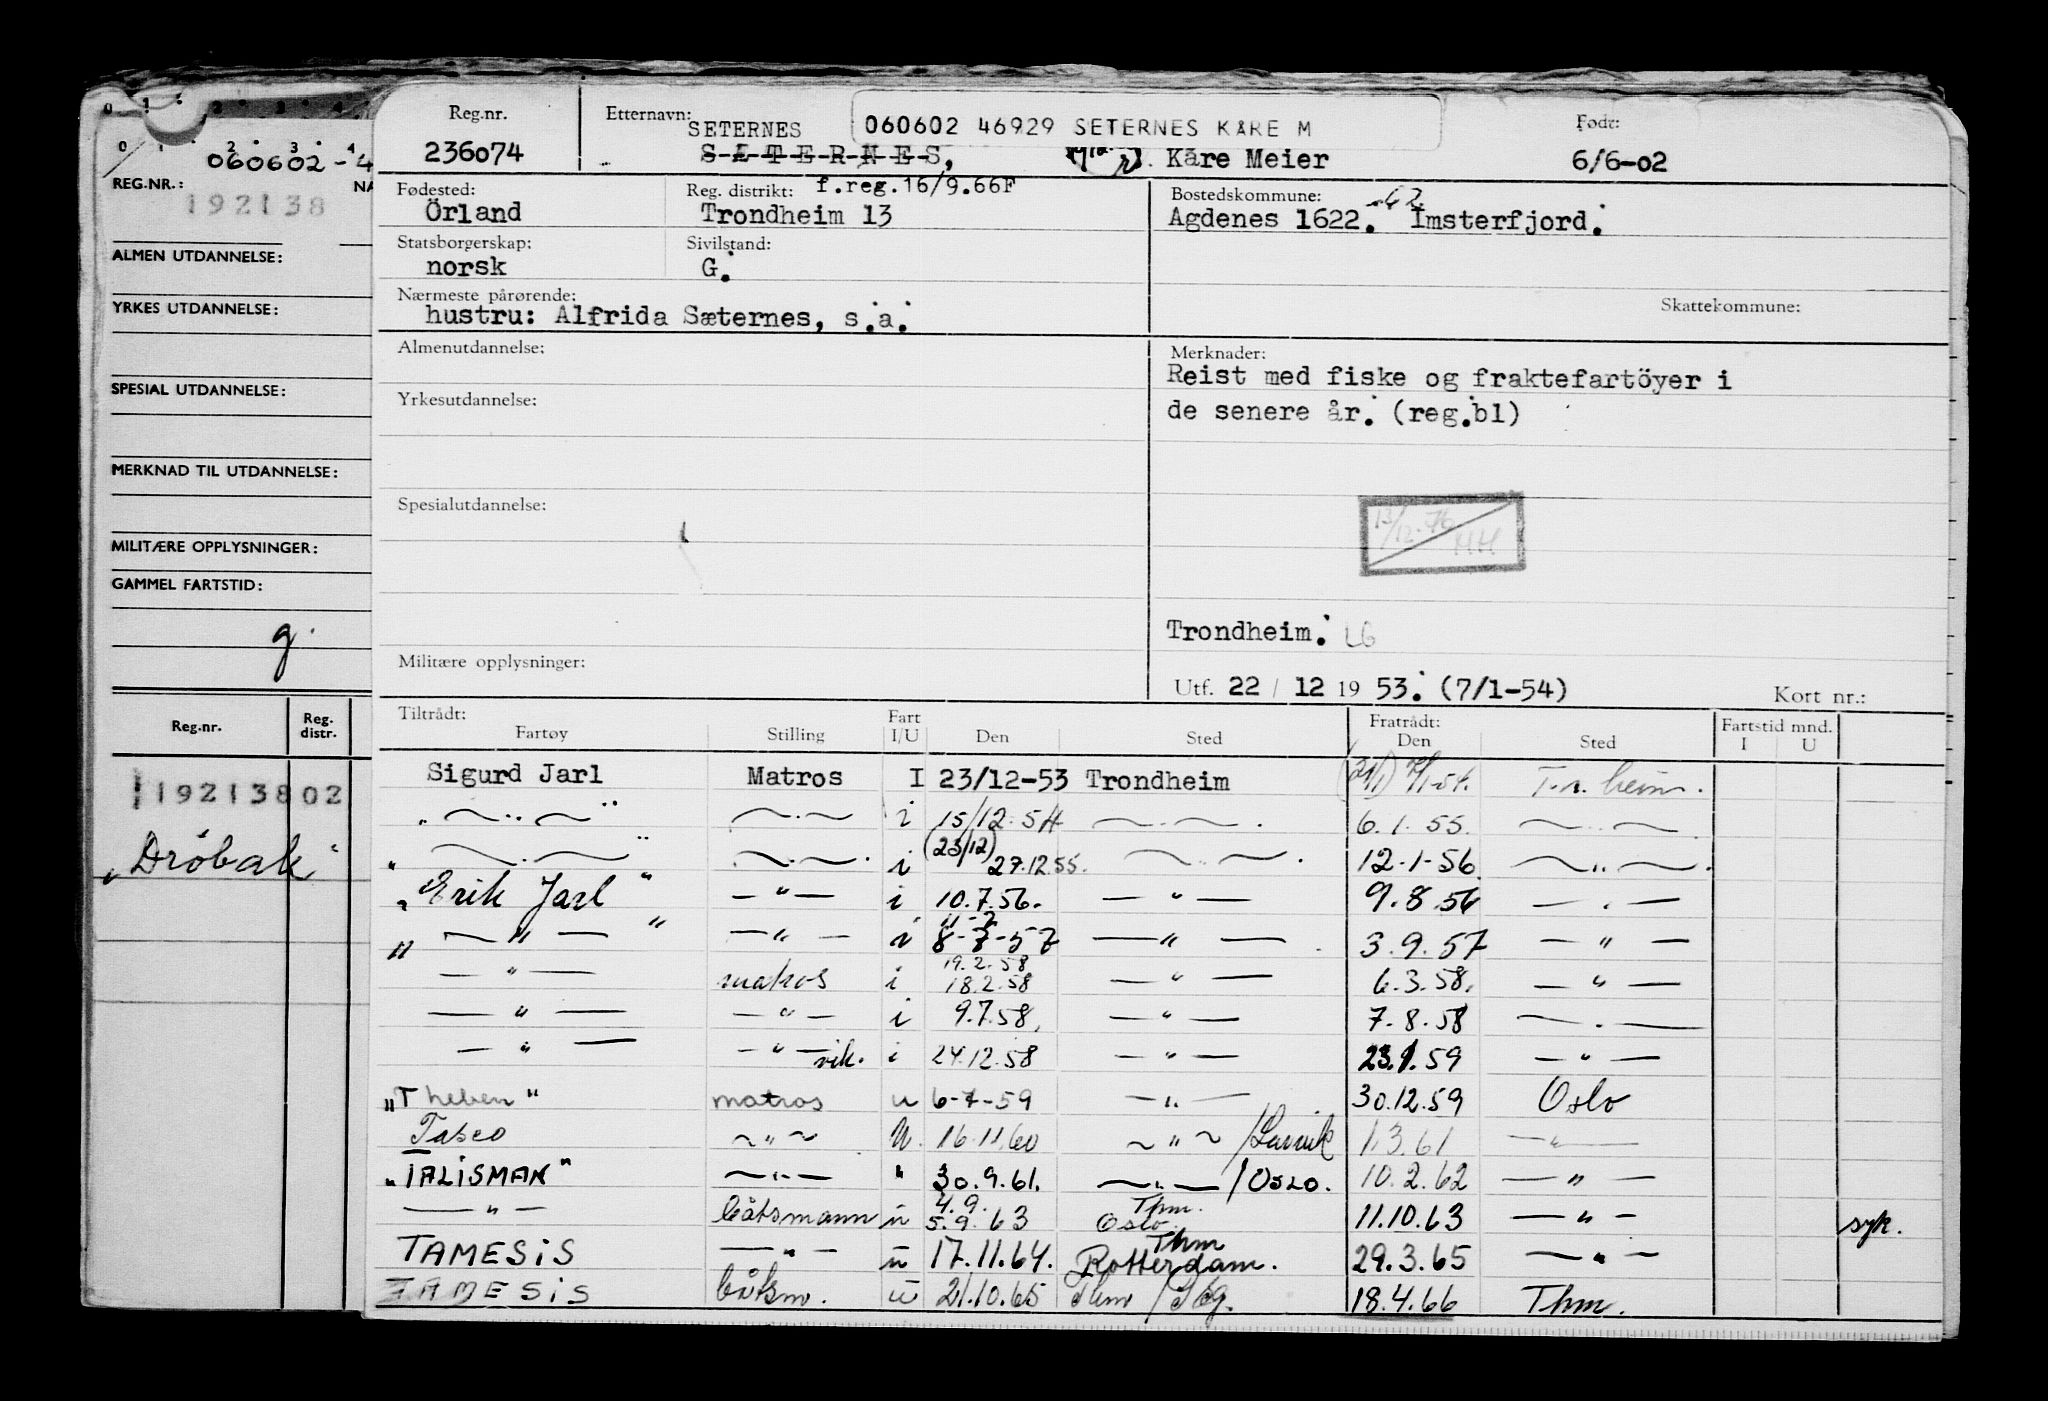 0 1 2 3 4
0 1 2 3 4
060602-4
REG.NR.: NA
192138
ALMEN UTDANNELSE:
YRKES UTDANNELSE:
SPESIAL UTDANNELSE:
MERKNAD TIL UTDANNELSE:
MILITÆRE OPPLYSNINGER:
GAMMEL FARTSTID:
g.
Reg.nr. Reg. distr.
19213802
"Drøbak"
Reg.nr. Etternavn: Født:
SETERNES 060602 46929 SETERNES KÅRE M
236074 S-Æ-T-E-R-N-E-S, Kåre Meier 6/6-02
Fødested: Reg. distrikt: f.reg.16/9.66F Bostedskommune:
Örland Trondheim 13 Agdenes 1622. Imsterfjord.
Statsborgerskap: Sivilstand:
norsk G.
Nærmeste pårørende: Skattekommune:
hustru: Alfrida Sæternes, s.a.
Almenutdannelse: Merknader:
Reist med fiske og fraktefartöyer i
Yrkesutdannelse: de senere år. (reg.bl)
Spesialutdannelse:
13/12-76 HH
Trondheim. LG
Militære opplysninger:
Utf. 22 / 12 19 53. (7/1-54) Kort nr.:
Tiltrådt: Fart Fratrådt: Fartstid mnd.
Fartøy Stilling I/U Den Sted Den Sted I U
Sigurd Jarl Matros I 23/12-53 Trondheim (21/1) Tr.heim.
" — " — " — " — i 15/12.54 — " — 6.1.55. — " —
(23/12)
" — " — " — " — i 27.12.55. — " — 12-1-56 — " —
"Erik Jarl" — " — i 10.7.56. — " — 9.8.56 — " —
11-7
" — " — " — " — i 8-7-57 — " — 3.9.57 — " —
19.2.58
— " — matros i 18.2.58 — " — 6.3.58. — " —
— " — — " — i 9.7.58. — " — 7.8.58 — " —
— " — — " — vik. i 24.12.58 — " — 23.1.59 — " —
"Theben" matros u 6-7-59 — " — 30.12.59 Oslo
Tasco — " — U. 16.11.60 — " — /Larvik 1.3.61 — " —
"TALISMAN" — " — " 30.9.61. — " — /OSLO. 10.2.62 — " —
4.9. Thm.
— " — båtsmann u 5.9.63 Oslo 11.10.63 — " — syk.
Thm
TAMESIS — " — u 17.11.64. Rotterdam. 29.3.65 — " —
TAMESIS båtsm. u 21.10.65 Thm 18.4.66 Thm.